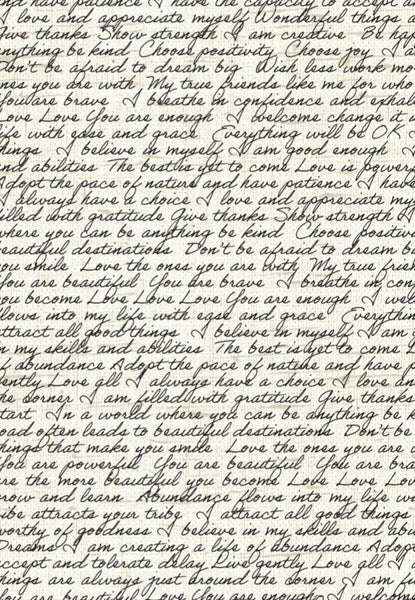 and have patience I have the capacity to accept a
I love and appreciate myself Wonderful things a
Give thanks Show strength I am creative Be hap
anything be kind Choose positivity Choose joy I
Don't be afraid to dream big Wish less work mo
ones you are with My true friends like me for who
You are brave I breathe in confidence and exhal
Love Love You are enough I welcome change it i
life with ease and grace Everything will be O.K.
things I believe in myself I am good enough I
and abilities The best is yet to come Love is powerf
Adopt the pace of nature and have patience I have
I always have a choice I love and appreciate my
filled with gratitude Give thanks Show strength I
where you can be anything be kind Choose positiv
beautiful destinations Don't be afraid to dream b
you smile Love the ones you are with My true frien
You are beautiful You are brave I breathe in con
you become Love Love Love You are enough I wel
flows into my life with ease and grace Everythin
attract all good things I believe in myself I am
in my skills and abilities The best is yet to come L
of abundance Adopt the pace of nature and have p
gently Love all I always have a choice I love an
the corner I am filled with gratitude Give thanks
start In a world where you can be anything be k
road often leads to beautiful destinations Don't be
things that make you smile Love the ones you are w
You are powerful You are beautiful You are bra
are the more beautiful you become Love Love Lov
grow and learn Abundance flows into my life w
tribe attracts your tribe I attract all good things
worthy of goodness I believe in my skills and abi
Dreams I am creating a life of abundance Adop
accept and tolerate delay Live gently Love all I
things are always just around the corner I am f
You are beautiful You are enough I welco